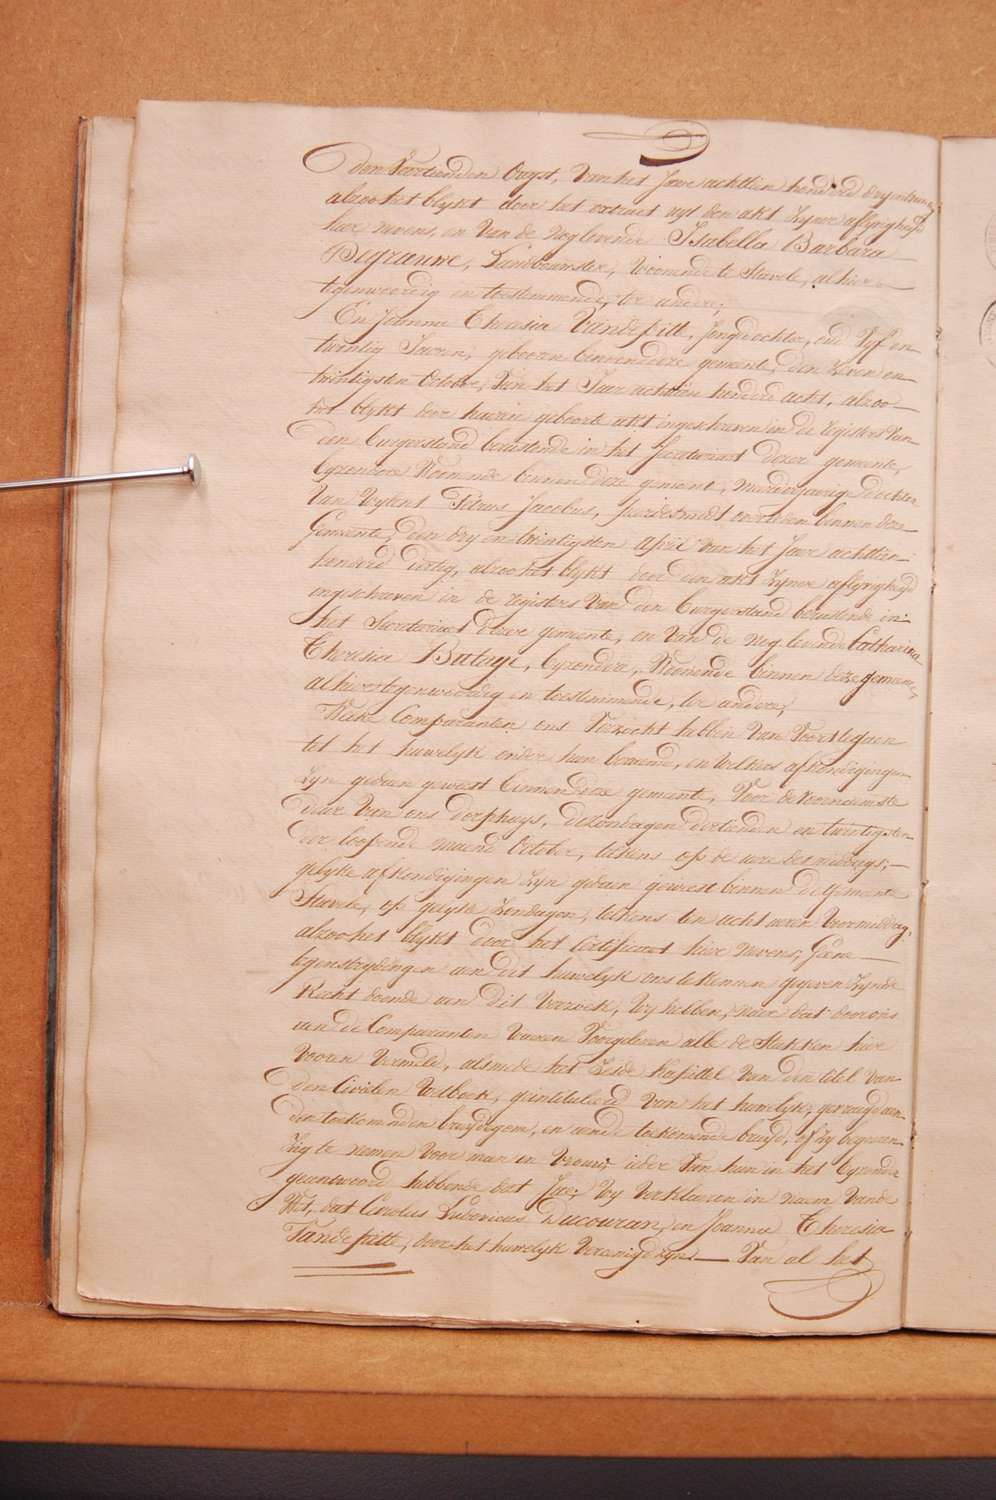 den Veertienden Ougst, Van het Jaer achttien honderd dryentwintig
alzoo het blykt door het extract uyt den akt Zyner aflyvigheyd
hier nevens, en Van de nog levende Isabella Barbara
Begrauwe, Landbouwster, Woonende te Stavele, alhier
tegenwoordig en toestemmende, ter andere,
En Joanna Theresia Vande pitte, Jongdochter, oud Vyf en
twintig Jaeren, gebooren binnen deze gemeente, den Zeven en
twintigsten October, Van het Jaer achttien honderd acht, alzoo
het blykt door haeren geboorte akt ingeschreven in de registers Van
den burgerstand berustende in het Secretariaet dezer gemeente,
byzondere Woonende binnen deze gemeente, meerderjarige dochter
Van Wylent Pieter Jacobus, herdersmede overleden binnen deze
Gemeente, den dry en twintigsten april van het Jaer achttien
honderd dertig, alzoo het blykt door den akt Zyner aflyvigheyd
ingeschreven in de registers Van den burgerstand berustende in
het Secretariaet dezer gemeente, en Van de nog levende Catharina
Theresia Butaye, byzondere, Woonende binnen deze gemeente,
alhier tegenwoordig en toestemmende, ter andere;
Welke Comparanten ons Verzocht hebben Van Voorstegaen
tot het huwelyk onder hun beraemd, en welkers afkondigingen
Zyn gedaen geweest binnen deze gemeente, Voor de voornaemste
deur Van ons dorphuys, de zondagen dertienden en twintigsten
der loopende maend October, telkens op de uere des middags;
gelyke afkondigingen Zyn gedaen geweest binnen de Gemeente
Stavele, op gelyke Zondagen, telkens ten acht ueren Voormiddag,
alzoo het blykt door het Certificaet hier nevens; Geene
tegenstrydingen aen dit huwelyk ons te kennen gegeven Zynde
Recht doende aen dit Verzoek, Wy hebben, naer dat door ons
aen de Comparanten Waeren Voorgelezen alle de Stukken hier
Vooren Vermeld, alsmede het Zesde Kapittel Van den titel Van
Den Civilen Wetboek, geintituleerd Van het huwelyk, gevraegd aen
den toekomenden bruydegom, en aende toekomende bruyd, of Zy begeeren
Zig te nemen Voor man en Vrouw; ieder Van hun in het byzonder
geantwoord hebbende dat Jae; Wy Verklaeren in naem Vande
Wet, dat Carolus Ludovicus Ducouran, en Joanna Theresia
Vande pitte, door het huwelyk Vereenigd zyn. — Van al het